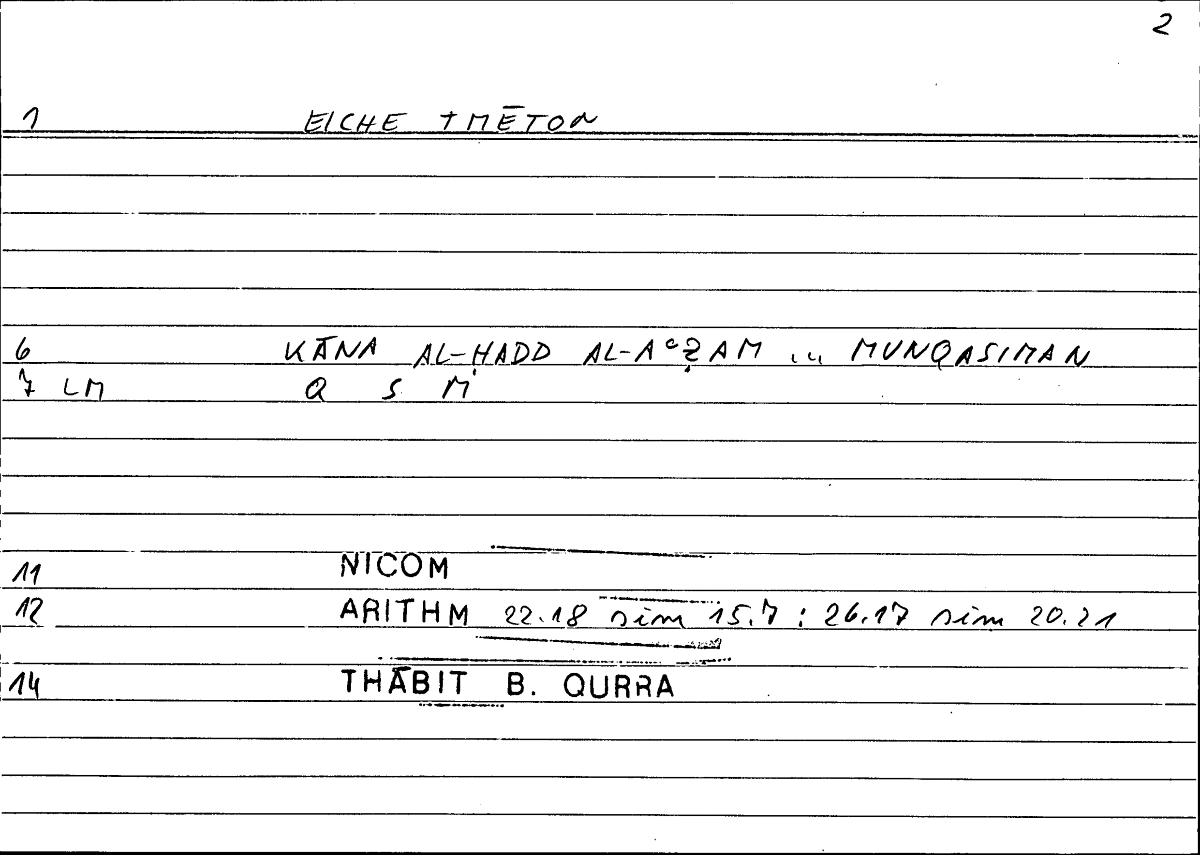 2
1 EICHE TMĒTON
6 KĀNA AL-ḤADD AL-AʿẒAM ... MUNQASIMAN
7 LM Q S M
11 NICOM
12 ARITHM 22.18 sim 15.7 : 26.17 sim 20.21
14 THĀBIT B. QURRA